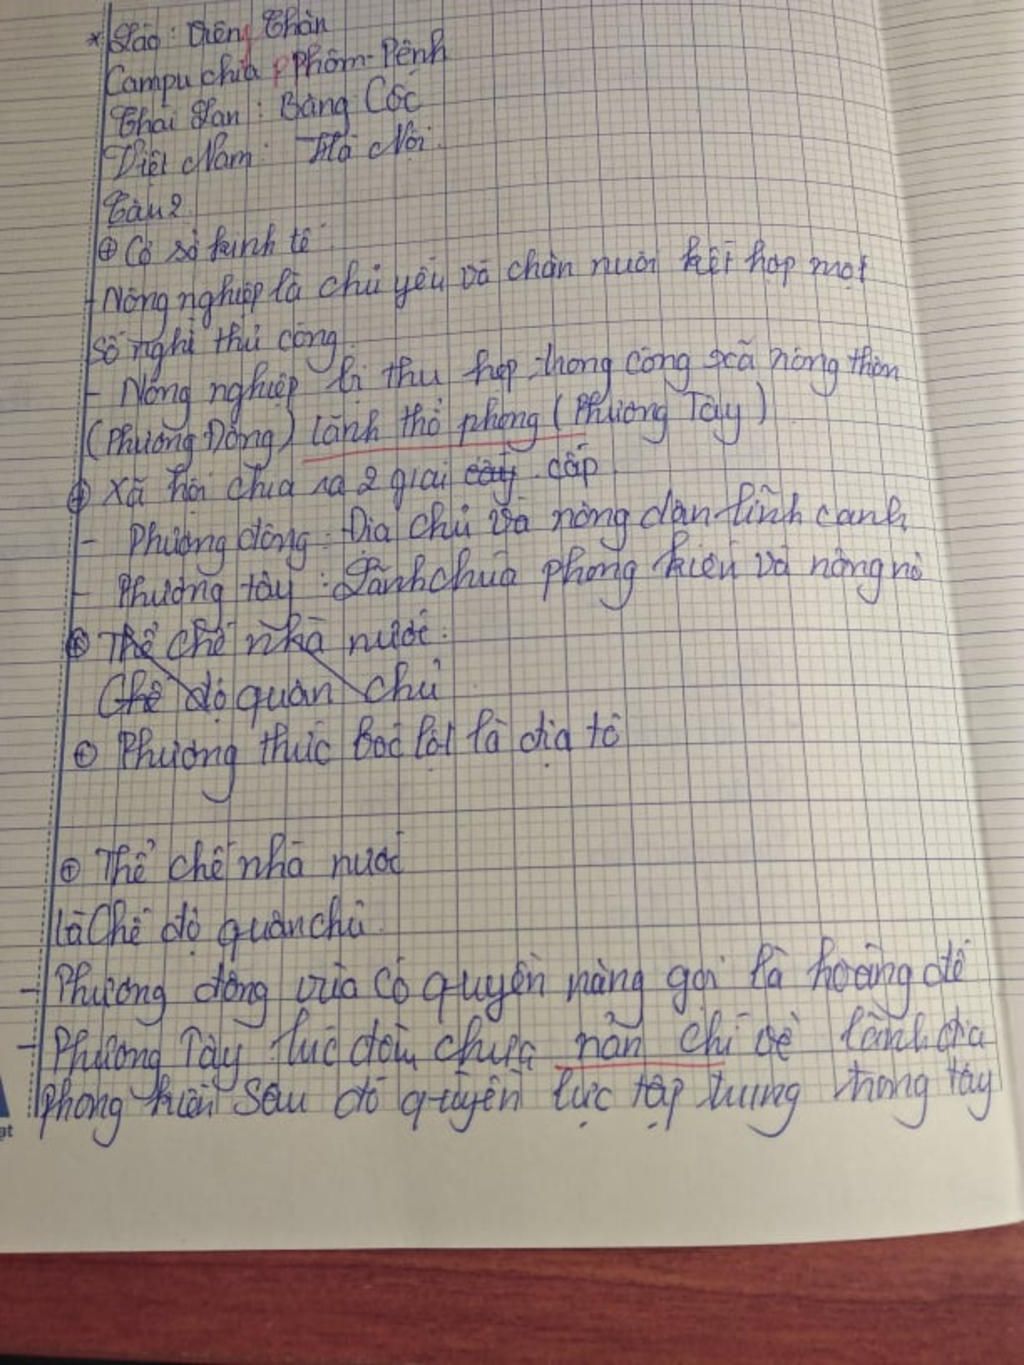 * Lào: Viêng Chăn
Campuchia Phôm-Pênh
Thai Lan: Băng Cốc
Việt Nam: Hà Nội.
Câu 2
⊕ Cơ sở kinh tế:
- Nông nghiệp là chủ yếu và chăn nuôi kết hợp một
số nghề thủ công.
- Nông nghiệp bị thu hẹp trong công xã nông thôn
(Phương Đông) lãnh thổ phong (Phương Tây)
⊕ Xã hội chia ra 2 giai cấp.
- Phương đông: Địa chủ và nông dân lĩnh canh
- Phương tây: Lãnh chúa phong kiến và nông nô
⊕ Thể chế nhà nước:
Chế độ quân chủ
⊕ Phương thức bóc lột là địa tô
⊕ Thể chế nhà nước
là Chế độ quân chủ.
- Phương đông vua có quyền năng gọi là hoàng đế
- Phương Tây: lúc đầu chưa nản chí để lãnh địa
phong kiến sau đó quyền lực tập trung trong tay